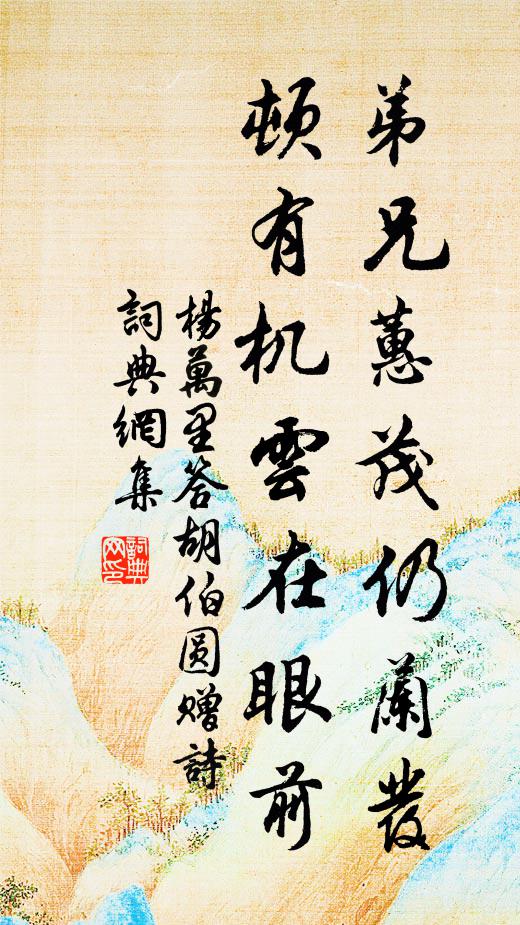 弟兄蕙茂仍蘭發
頓有机雲在眼前
楊萬里答胡伯圆贈詩
詞典網集
詞典
网印